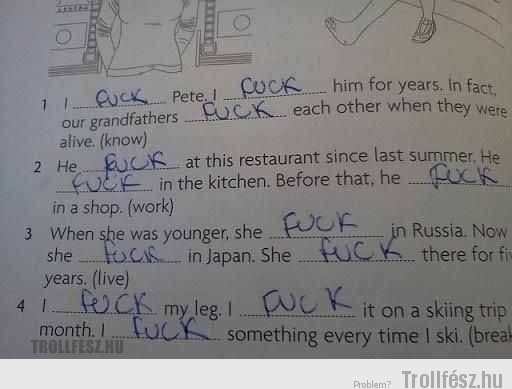 1 I FUCK Pete. I FUCK him for years. In fact,
our grandfathers FUCK each other when they were
alive. (know)
2 He FUCK at this restaurant since last summer. He
FUCK in the kitchen. Before that, he FUCK
in a shop. (work)
3 When she was younger, she FUCK in Russia. Now
she FUCK in Japan. She FUCK there for fi
years. (live)
4 I FUCK my leg. I FUCK it on a skiing trip
month. I FUCK something every time I ski. (break
TROLLFÉSZ.HU
Problem? Trollfész.hu